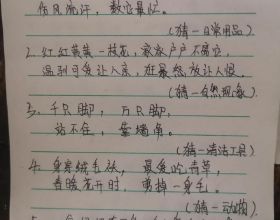 伤风流汗，数它最忙。
(猜一日常用品)
2. 红红黄黄一枝花，家家户户不离它，
温驯可爱让人亲，狂暴怒放让人恨。
(猜一自然现象)
3. 千只脚，万只脚，
站不住，靠墙角。
(猜一清洁工具)
4. 身穿绒毛衣，最爱吃青草，
春暖花开时，剪掉一身毛。
(猜一动物)